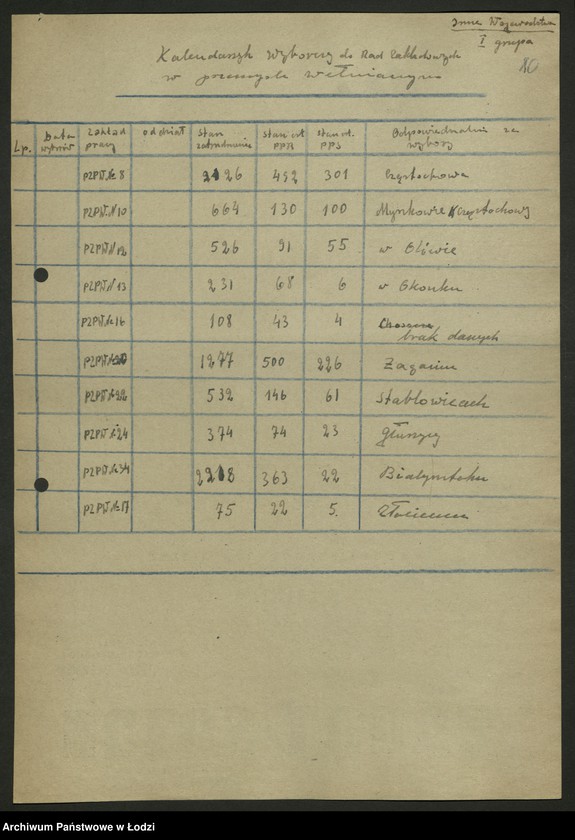 Inne Województwa
I grupa
80
Kalendarzyk Wyborczy do Rad Zakładowych
w przemyśle wełnianym
Lp. Data wyborów Zakład pracy oddział Stan zatrudnienia Stan czł. PPR Stan czł. PPS Odpowiedzialni za wybory
PZPW Nr 8 2126 452 301 Częstochowa
PZPW Nr 10 664 130 100 Myszkowie Częstochowy
PZPW Nr 12 526 91 55 w Gliwic
PZPW Nr 13 231 68 6 w Okonku
PZPW Nr 16 108 43 4
brak danych
PZPW Nr 20 1277 500 226 Żaganiu
PZPW Nr 22 532 146 61 Stabłowicach
PZPW Nr 24 374 74 23 Głuszycy
PZPW Nr 34 2218 363 22 Białymstoku
PZPW Nr 17 75 22 5. Złocieniu
Archiwum Państwowe w Łodzi